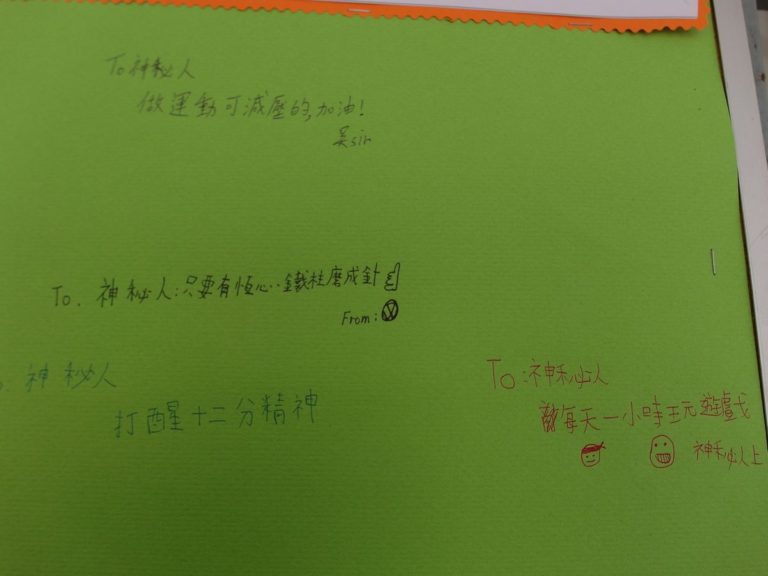 To 神秘人
做運動可減壓的,加油!
吳sir
To. 神秘人:只要有恒心‥鐵柱磨成針
From:
神秘人
打醒十二分精神
To:神秘人
每天一小時玩遊戲
神秘人上